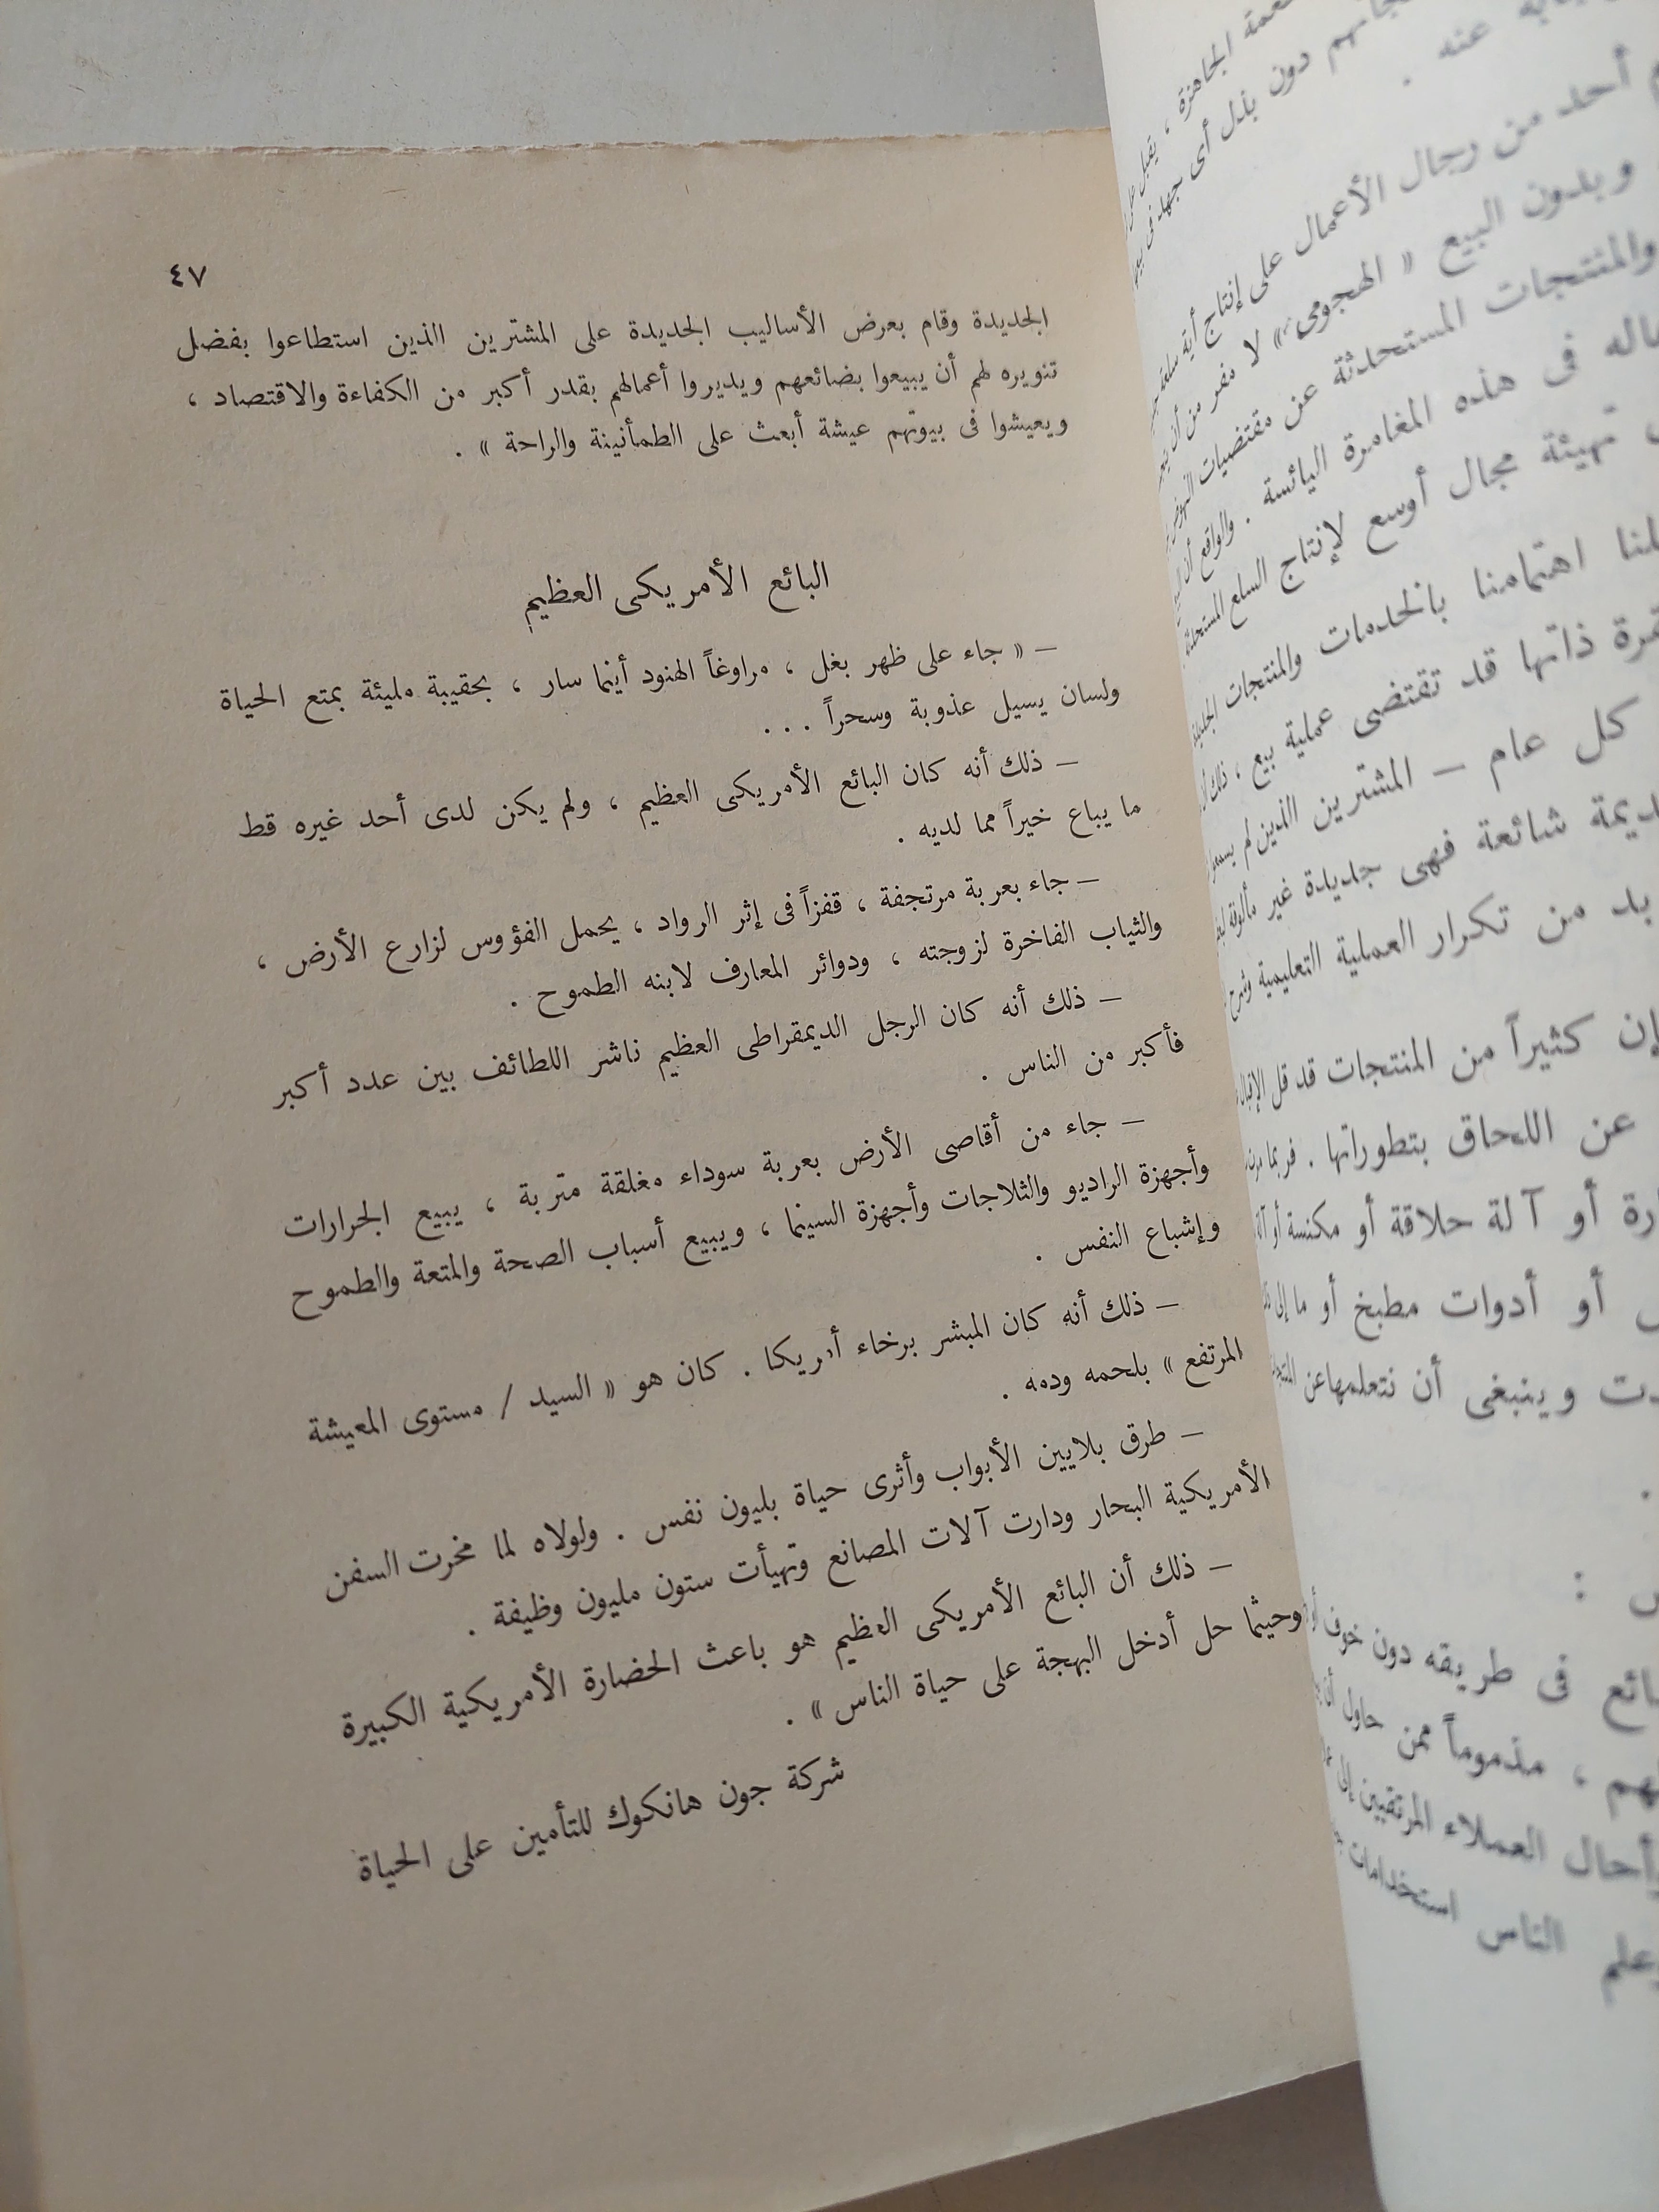 ٤٧
الجديدة وقام بعرض الأساليب الجديدة على المشترين الذين استطاعوا بفضل
تنويره لهم أن يبيعوا بضائعهم ويديروا أعمالهم بقدر أكبر من الكفاءة والاقتصاد ،
ويعيشوا فى بيوتهم عيشة أبعث على الطمأنينة والراحة » .
البائع الأمريكى العظيم
— « جاء على ظهر بغل ، مراوغاً الهنود أينما سار ، بحقيبة مليئة بمتع الحياة
ولسان يسيل عذوبة وسحراً . . .
— ذلك أنه كان البائع الأمريكى العظيم ، ولم يكن لدى أحد غيره قط
ما يباع خيراً مما لديه .
— جاء بعربة مرتجفة ، قفزاً فى إثر الرواد ، يحمل الفؤوس لزارع الأرض ،
والثياب الفاخرة لزوجته ، ودوائر المعارف لابنه الطموح .
— ذلك أنه كان الرجل الديمقراطى العظيم ناشر اللطائف بين عدد أكبر
فأكبر من الناس .
— جاء من أقاصى الأرض بعربة سوداء مغلقة متربة ، يبيع الجرارات
وأجهزة الراديو والثلاجات وأجهزة السينما ، ويبيع أسباب الصحة والمتعة والطموح
وإشباع النفس .
— ذلك أنه كان المبشر برخاء أمريكا . كان هو « السيد / مستوى المعيشة
المرتفع » بلحمه ودمه .
— طرق بلايين الأبواب وأثرى حياة بليون نفس . ولولاه لما مخرت السفن
الأمريكية البحار ودارت آلات المصانع وتهيأت ستون مليون وظيفة .
— ذلك أن البائع الأمريكى العظيم هو باعث الحضارة الأمريكية الكبيرة
وحيثما حل أدخل البهجة على حياة الناس » .
شركة جون هانكوك للتأمين على الحياة
دون بذل أى جهد فى
أحد من رجال الأعمال على إنتاج أية
وبدون البيع « الهجومى » لا مفر من أن
والمنتجات المستحدثة عن مقتضيات
فى هذه المغامرة اليائسة . والواقع أن
تهيئة مجال أوسع لإنتاج السلع
اهتمامنا بالخدمات والمنتجات
ذاتها قد تقتضى عملية بيع ،
كل عام — المشترين الذين لم
شائعة فهى جديدة غير مألوفة
بد من تكرار العملية التعليمية
كثيراً من المنتجات قد قل
عن اللحاق بتطوراتها . فربما
أو آلة حلاقة أو مكنسة أو
أو أدوات مطبخ أو ما إلى
وينبغى أن نتعلمها عن
فى طريقه دون خوف
، مذموماً ممن حاول أن
العملاء المرتقبين إلى
الناس استخدامات